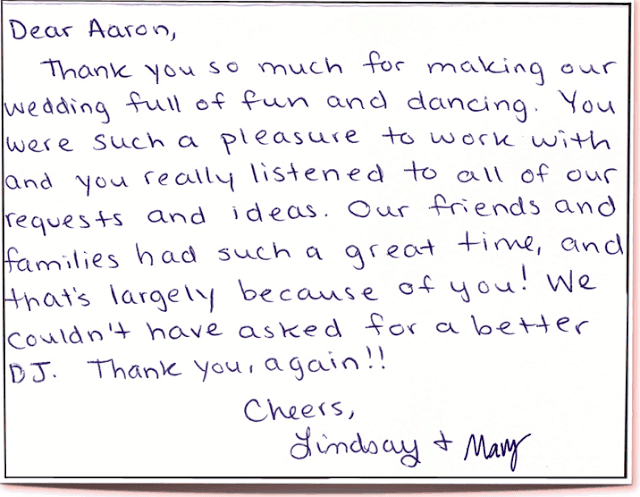 Dear Aaron,
Thank you so much for making our
wedding full of fun and dancing. You
were such a pleasure to work with
and you really listened to all of our
requests and ideas. Our friends and
families had such a great time, and
that's largely because of you! We
couldn't have asked for a better
DJ. Thank you, again!!
Cheers,
Lindsay + Mary